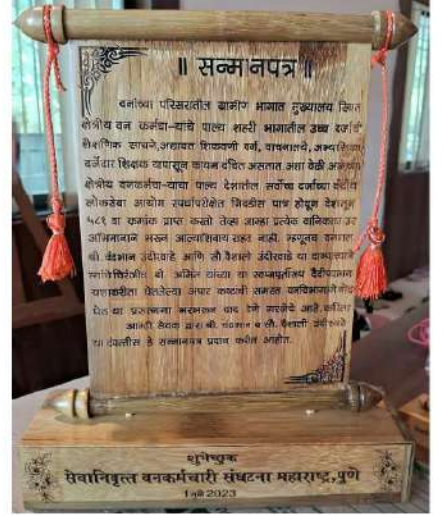 ॥ सन्मानपत्र ॥
वनांच्या परिसरातील ग्रामीण भागात मुख्यालय स्थित
क्षेत्रीय वन कर्मचा-यांचे पाल्य शहरी भागातील उच्च दर्जाचे
शैक्षणिक साधने, अद्यावत शिकवणी वर्ग, वाचनालये, अभ्यासिका,
दर्जेदार शिक्षक यापासून कायम वंचित असतात. अशा वेळी
क्षेत्रीय वनकर्मचा-याचा पाल्य देशातील सर्वोच्च दर्जाच्या केंद्रीय
लोकसेवा आयोग स्पर्धापरीक्षेत निवडीस पात्र होवून देशातून
५८१ वा क्रमांक प्राप्त करतो तेव्हा आम्हा प्रत्येक वानिकाचा उर
अभिमानाने भरून आल्याशिवाय राहत नाही. म्हणूनच वनपाल
श्री. चंद्रभान उंदीरवाडे आणि सौ वैशाली उंदीरवाडे या दाम्पत्याचे
श्री. यांच्या या स्वप्नपूर्तीमय दैदीप्यमान
यशाकरीता घेतलेल्या अपार कष्टाची समस्त वनविभागाने नोंद
घेत या प्रसंगाला भरभरून दाद देणे गरजेचे आहे. करिता
आम्ही सेवक द्वारा श्री. चंद्रभान व सौ. वैशाली उंदीरवाडे
या दांपत्तीस हे सन्मानपत्र प्रदान करीत आहोत.
शुभेच्छुक
सेवानिवृत्त वनकर्मचारी संघटना महाराष्ट्र, पुणे
1 जुलै 2023